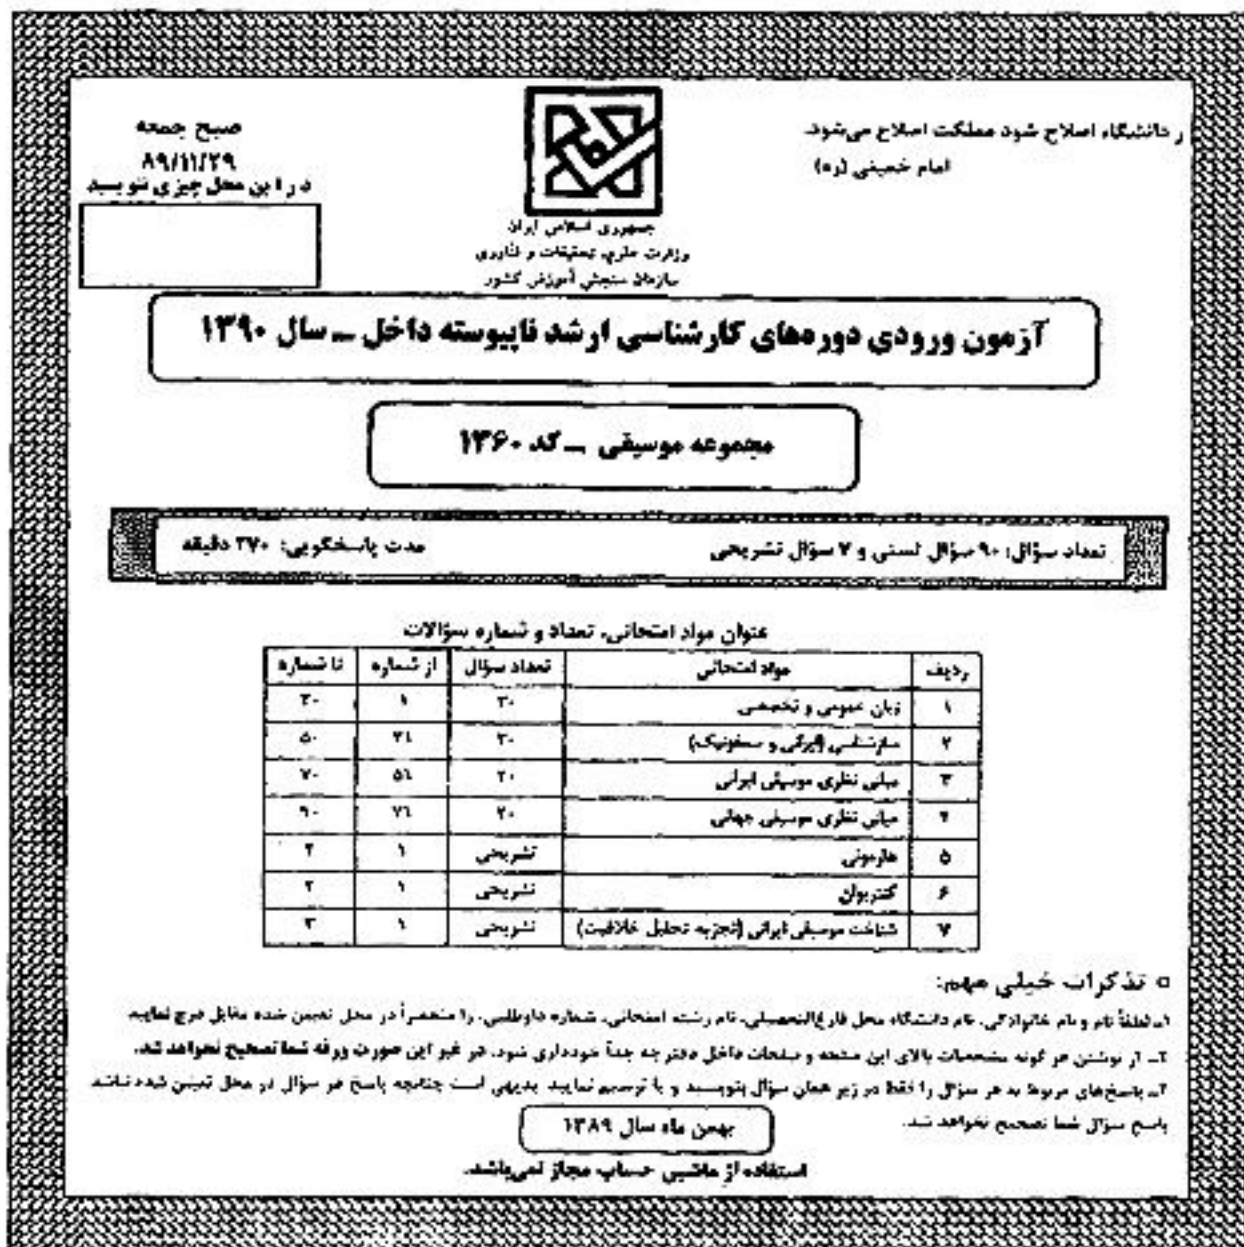 ر دانشگاه اصلاح شود مملکت اصلاح می‌شود.
امام خمینی (ره)
جمهوری اسلامی ایران
وزارت علوم، تحقیقات و فناوری
سازمان سنجش آموزش کشور
صبح جمعه
۸۹/۱۱/۲۹
در این محل چیزی ننویسید
آزمون ورودی دوره‌های کارشناسی ارشد ناپیوسته داخل ــ سال ۱۳۹۰
مجموعه موسیقی ــ کد ۱۳۶۰
تعداد سؤال: ۹۰ سؤال تستی و ۷ سؤال تشریحی مدت پاسخگویی: ۲۷۰ دقیقه
عنوان مواد امتحانی، تعداد و شماره سؤالات
ردیف مواد امتحانی تعداد سؤال از شماره تا شماره
۱ زبان عمومی و تخصصی ۳۰ ۱ ۳۰
۲ سازشناسی (ایرانی و سمفونیک) ۲۰ ۳۱ ۵۰
۳ مبانی نظری موسیقی ایرانی ۲۰ ۵۱ ۷۰
۴ مبانی نظری موسیقی جهانی ۲۰ ۷۱ ۹۰
۵ هارمونی تشریحی ۱ ۲
۶ کنترپوان تشریحی ۱ ۲
۷ شناخت موسیقی ایرانی (تجزیه تحلیل خلاقیت) تشریحی ۱ ۳
تذکرات خیلی مهم:
۱ـ لطفاً نام و نام خانوادگی، نام دانشگاه محل فارغ‌التحصیلی، نام رشته امتحانی، شماره داوطلبی، را منحصراً در محل تعیین شده مقابل درج نمایید
۲ـ از نوشتن هر گونه مشخصات بالای این صفحه و صفحات داخل دفترچه جداً خودداری شود، در غیر این صورت ورقه شما تصحیح نخواهد شد.
۳ـ پاسخ‌های مربوط به هر سؤال را فقط در زیر همان سؤال بنویسید و یا ترسیم نمایید بدیهی است چنانچه پاسخ هر سؤال در محل تعیین شده نباشد
پاسخ سؤال شما تصحیح نخواهد شد.
بهمن ماه سال ۱۳۸۹
استفاده از ماشین حساب مجاز نمی‌باشد.